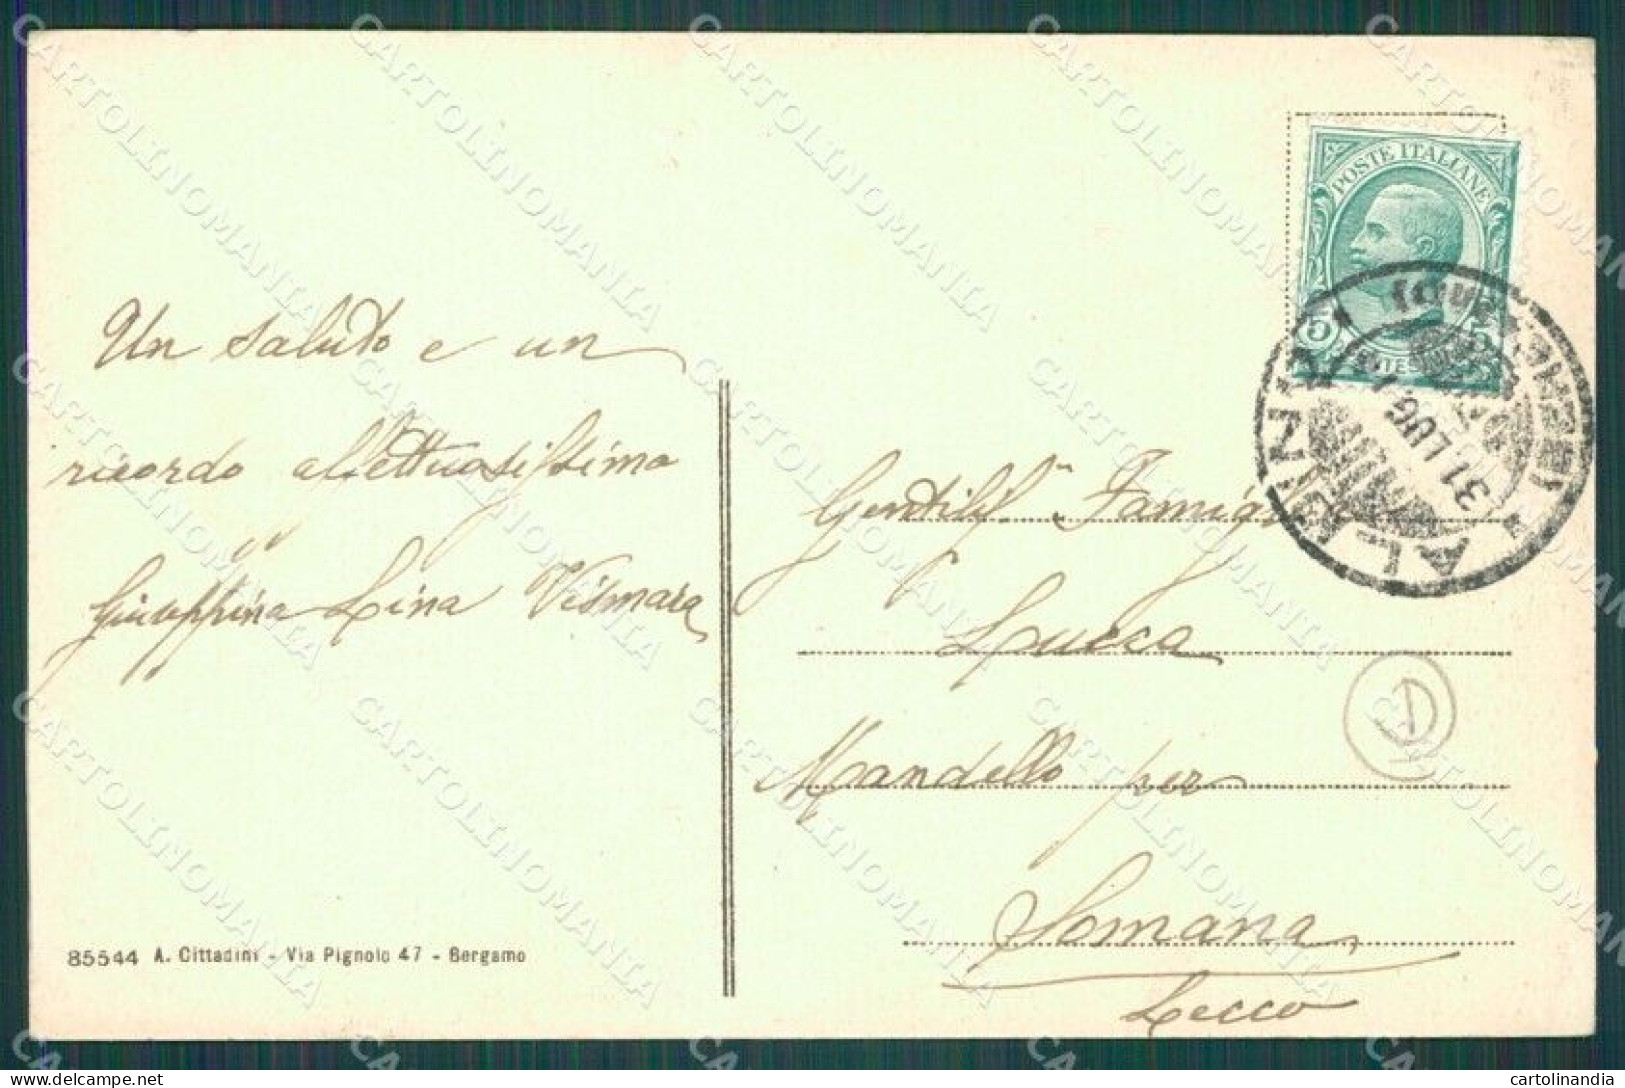 Un saluto e un
ricordo affettuosissimo
Giuseppina Lina Vismara
85544 A. Cittadini - Via Pignolo 47 - Bergamo
POSTE ITALIANE
5
ALBINO
(BERGAMO)
31 LUG
Gentilis.ma Famig
Lucca
Mandello per
Somana
Lecco
D
CARTOLINOMANIA
cartolinandia